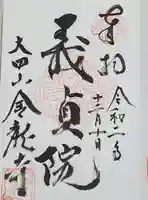 奉拝
令和二年
十二月十日
義貞院
太田山金龍寺